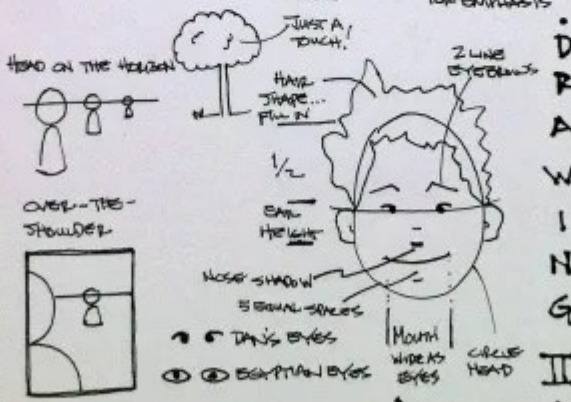 FOR EMPHASIS
JUST A
TOUCH!
HEAD ON THE HORIZON
2 LINE
EYEBROWS
HAIR
SHAPE...
FILL IN
1/2
OVER-THE-
SHOULDER
EAR
HEIGHT
NOSE SHADOW
5 EQUAL SPACES
DAN'S EYES
EGYPTIAN EYES
MOUTH
WIDE AS
EYES
CIRCLE
HEAD
DRAWING
II